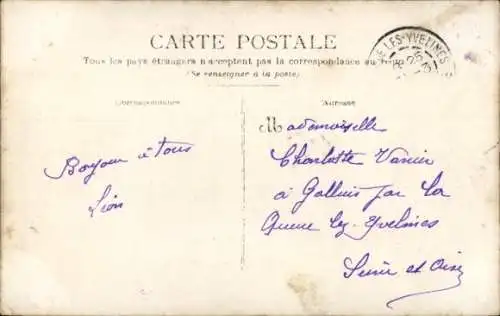 CARTE POSTALE
Tous les pays étrangers n'acceptent pas la correspondance au recto
(Se renseigner à la poste)
Correspondance
Adresse
E LES-YVELINES
Bonjour à tous
Léon
Mademoiselle
Charlotte Vanier
à Galluis par La
Queue lez-Yvelines
Seine et Oise